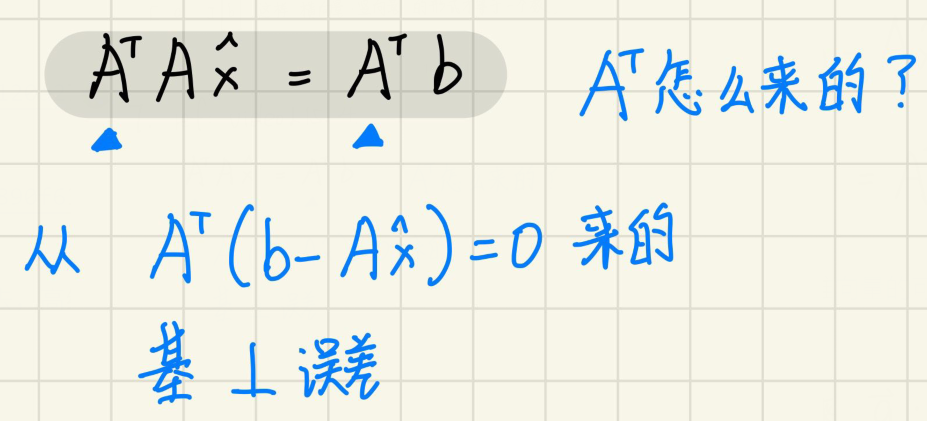 AᵀA x̂ = Aᵀb Aᵀ怎么来的？
从 Aᵀ(b-Ax̂)=0 来的
基⊥误差